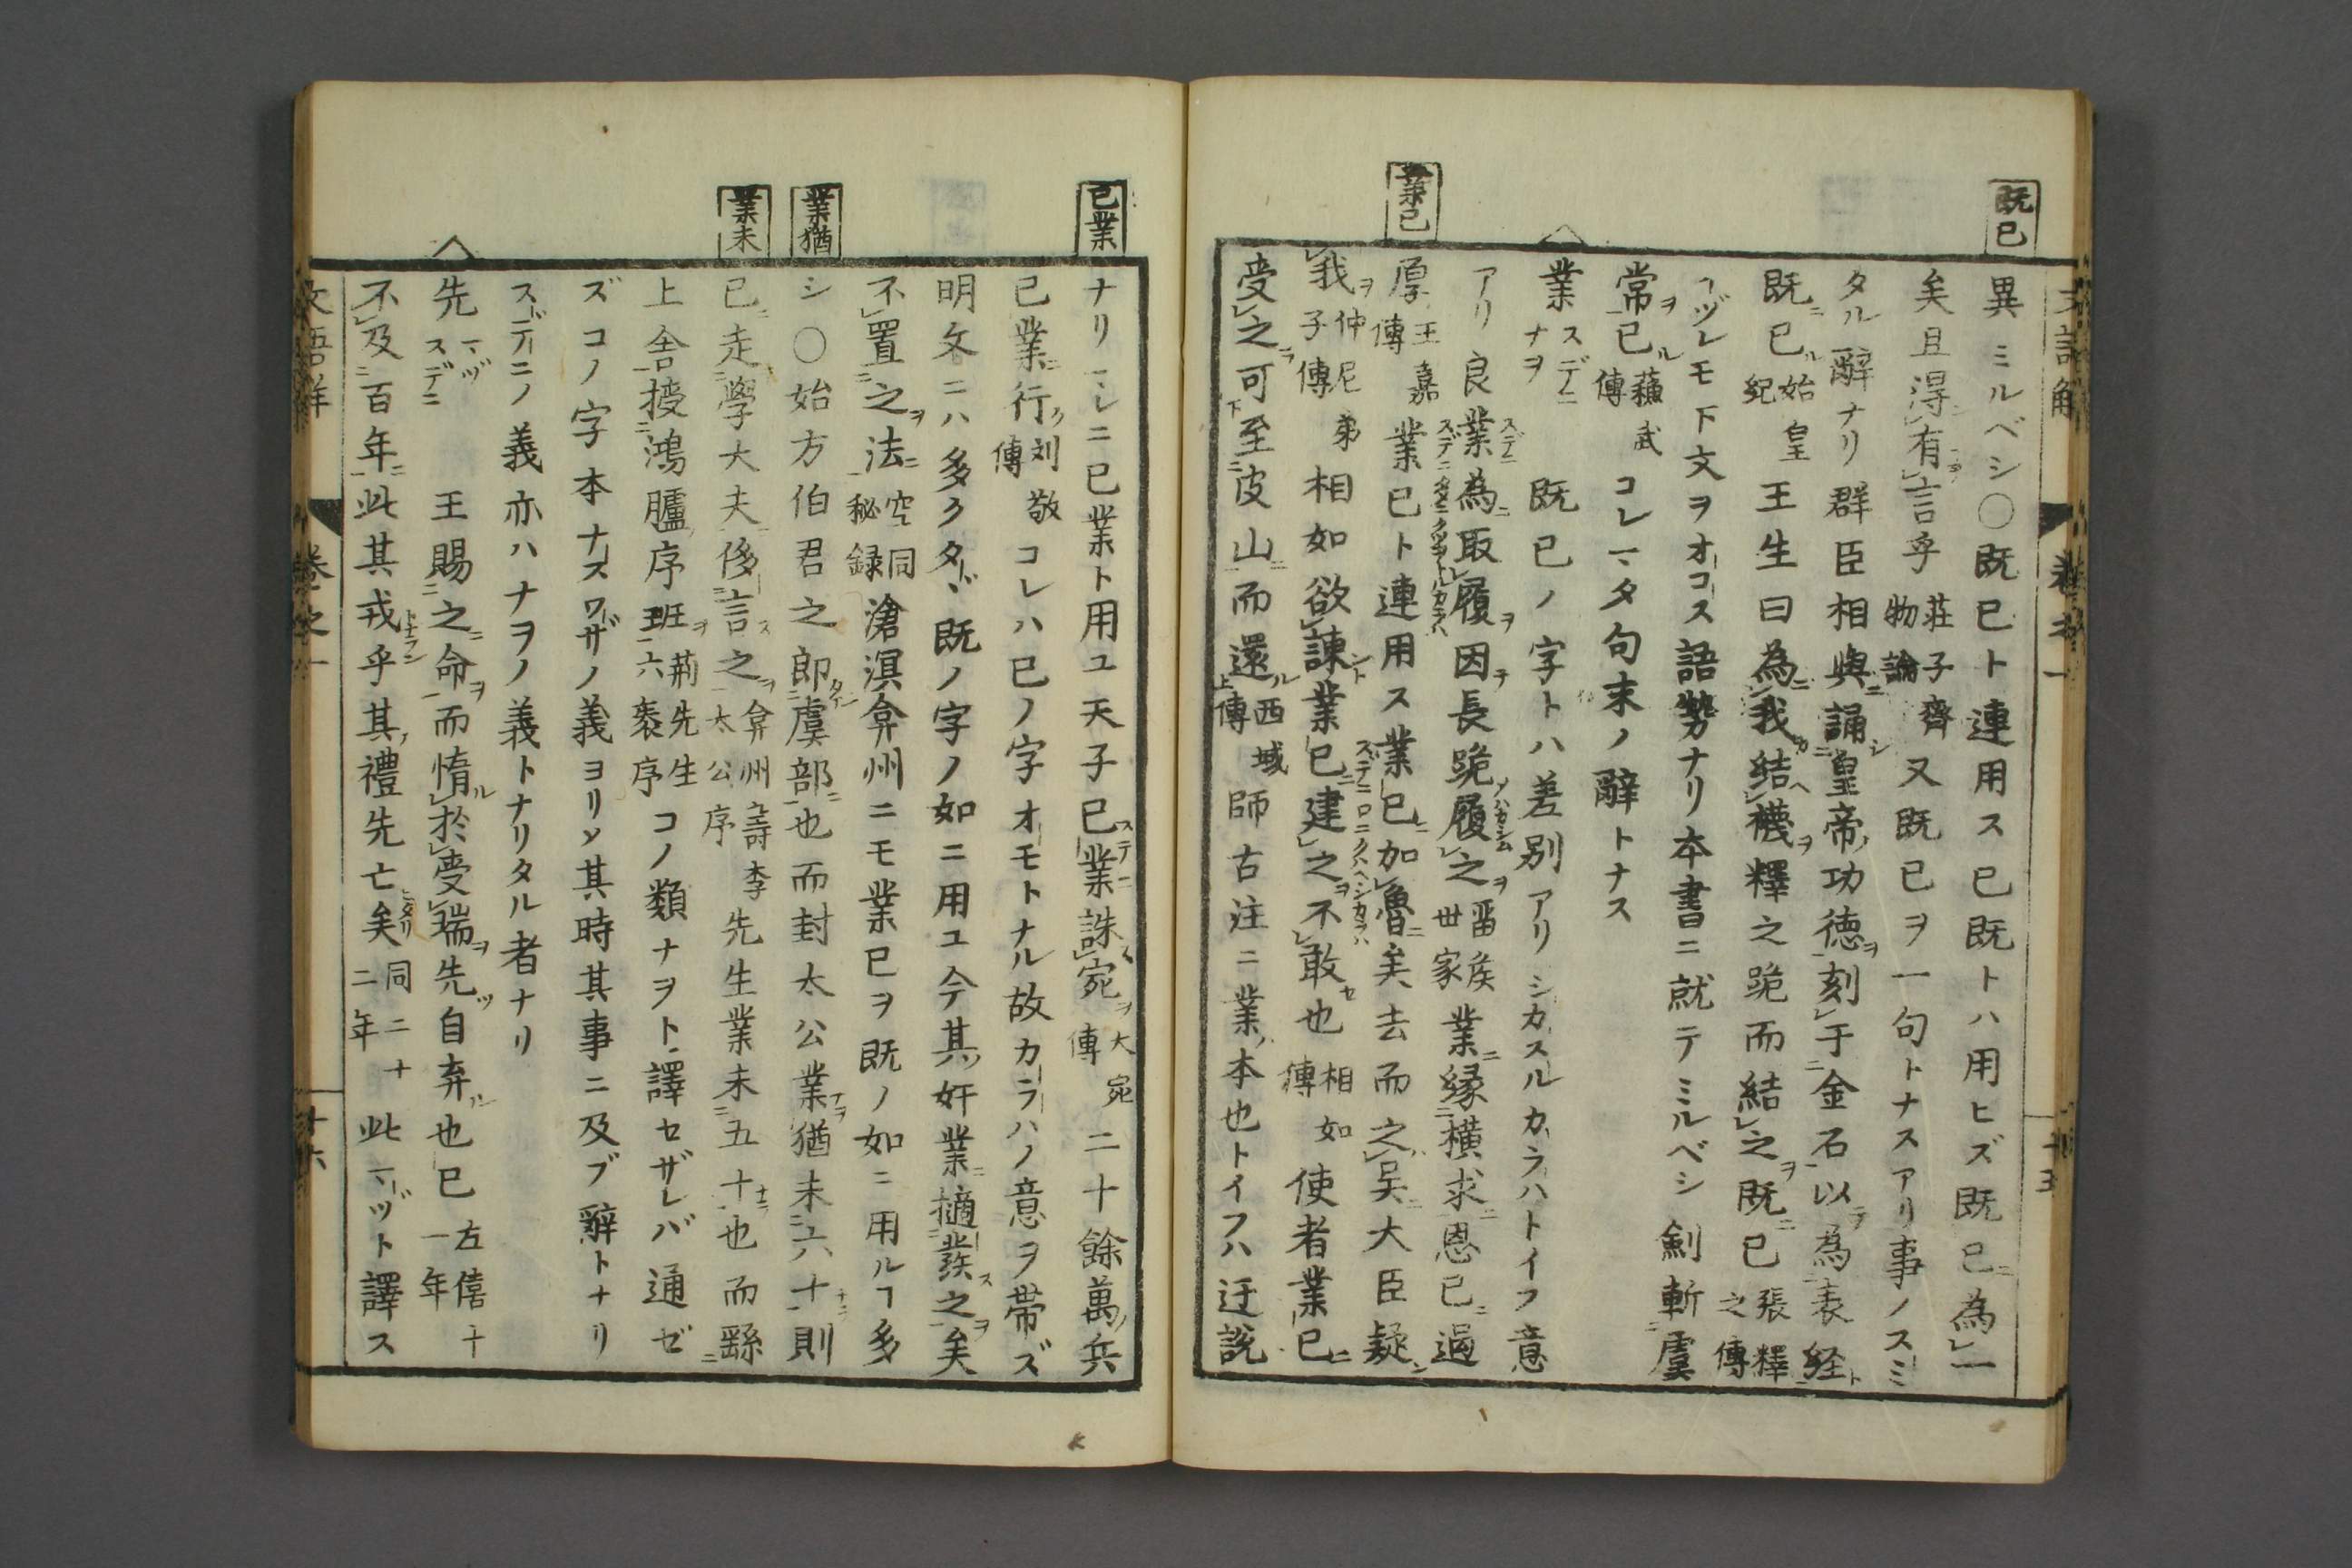 既已
異ミルベシ○既已ト連用ス已既トハ用ヒズ既已為一
矣且得有言乎荘子齊物論又既已ヲ一句トナスアリ事ノスミ
タル辭ナリ群臣相與誦皇帝功德刻于金石以為表経
既已始皇紀王生曰為我結襪釋之跪而結之既已張釋之傳
イヅレモ下文ヲオコス語勢ナリ本書ニ就テミルベシ劍斬虞
常已蘇武傳コレマタ句末ノ辭トナス
業スデニナヲ既已ノ字トハ差別アリシカスルカラハトイフ意
アリ良業為取履因長跪履之畱侯世家業縁橫求恩已過
業已
厚王嘉傳業已ト連用ス業已加魯矣去而之吳大臣疑
我仲尼弟子傳相如欲諫業已建之不敢也相如傳使者業已
受之可至皮山而還西域上傳師古注ニ業本也トイフハ迂説
已業
ナリマレニ已業ト用ユ天子已業誅宛大宛傳二十餘萬兵
已業行刘敬傳コレハ已ノ字オモトナル故カラハノ意ヲ帯ズ
明文ニハ多クタヾ既ノ字ノ如ニ用ユ今其奸業擿發之矣
不置之法空同秘録滄溟弇州ニモ業已ヲ既ノ如ニ用ルヿ多
業猶
シ○始方伯君之郎虞部也而封太公業猶未六十則
業未
已走學大夫侈言之弇州壽李太公序先生業未五十也而繇
上舍授鴻臚序班荊先生六袠序コノ類ナヲト譯セザレバ通ゼ
ズコノ字本ナスワザノ義ヨリシ其時其事ニ及ブ辭トナリ
スデニノ義亦ハナヲノ義トナリタル者ナリ
先マヅスデニ王賜之命而惰於受瑞先自弃也已左僖十一年
不及百年此其戎乎其禮先亡矣同二十二年此マヅト譯ス
卷之一
十六